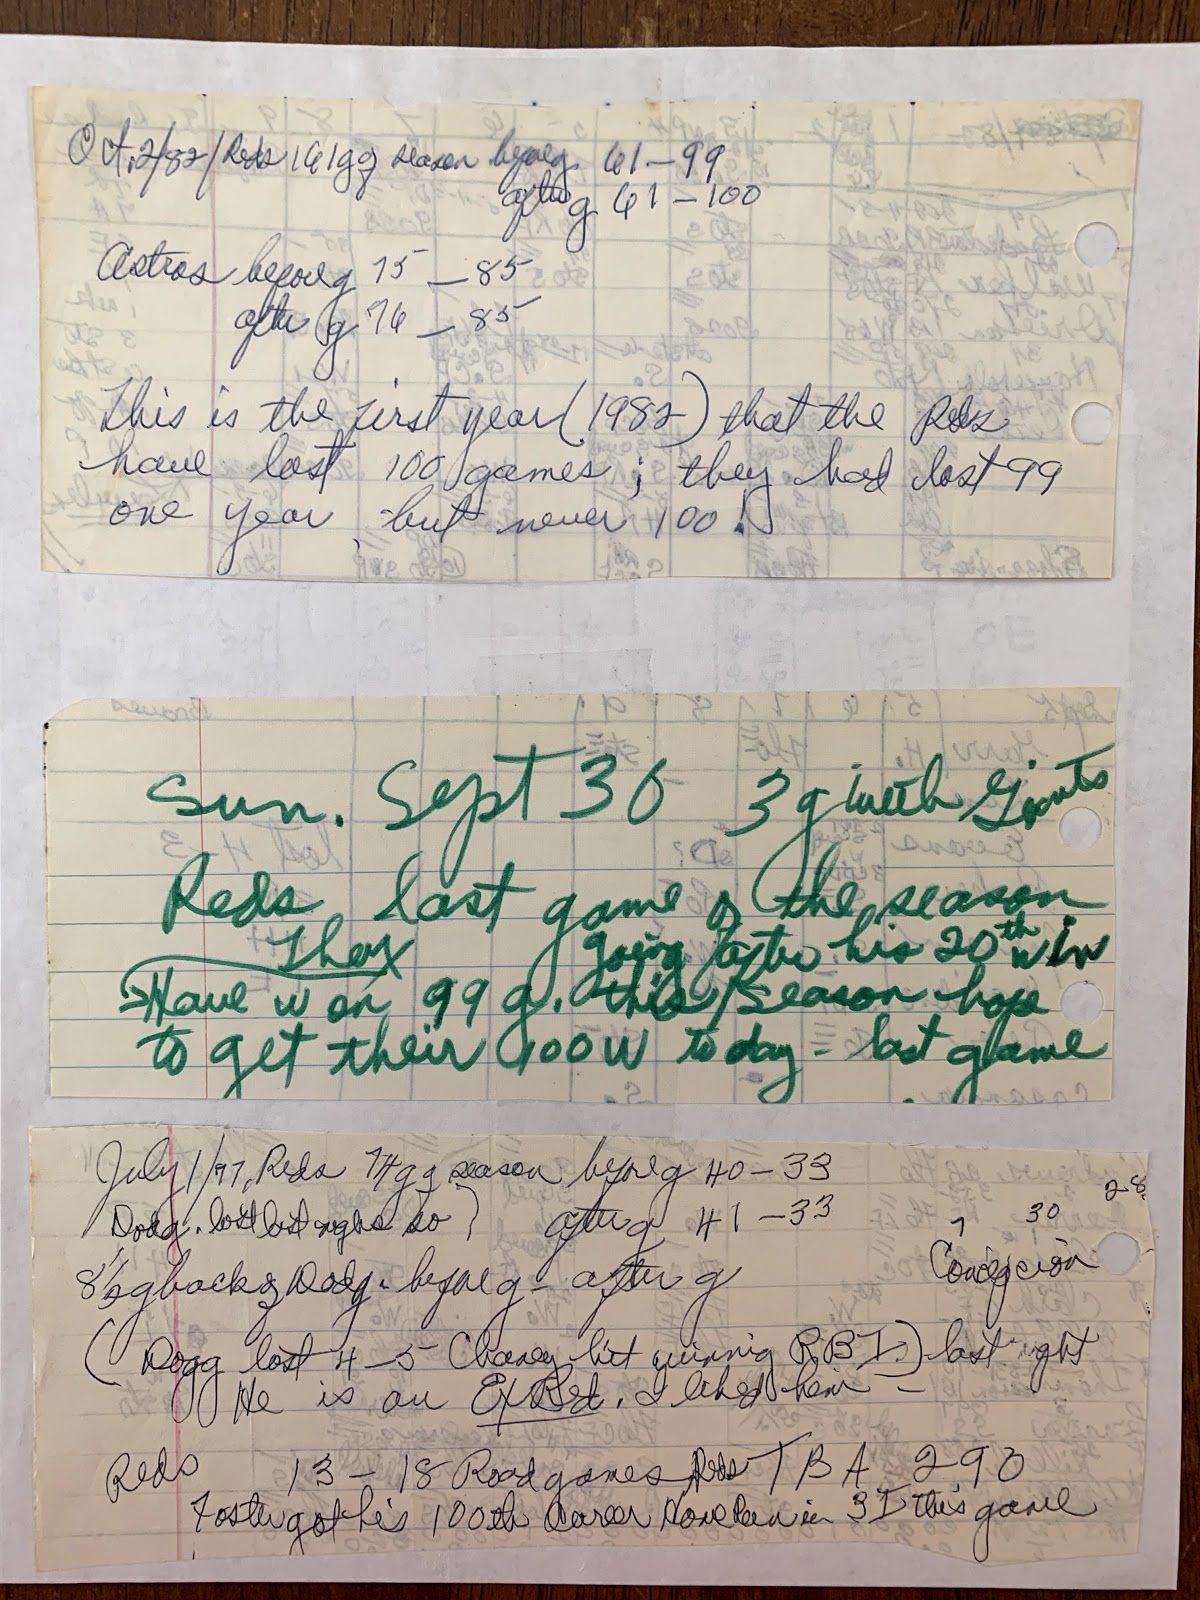 Oct, 2/82/ Reds 161g g season before g 61-99
after g 61-100
Astros before g 75-85
after g 76-85
This is the first year (1982) that the Reds
have lost 100 games; they had lost 99
one year but never 100!
Sun. Sept 30 3 g with Giants
Reds last game of the season
They going after his 20th win
Have won 99 g. this season hope
to get their 100 W today - last game
July 1/77, Reds 74 g g season before g 40-33
Dodg. lost last night so after g 41-33
7 30 28
Concepcion
8 1/2 g back of Dodg. before g - after g
(Dodg lost 4-5 Chaney hit winning RBI.) last night
He is an Ex Red. I liked him -
Reds 13-18 Road games Reds TBA 290
Foster got his 100th Career Home Run in 3 I this game